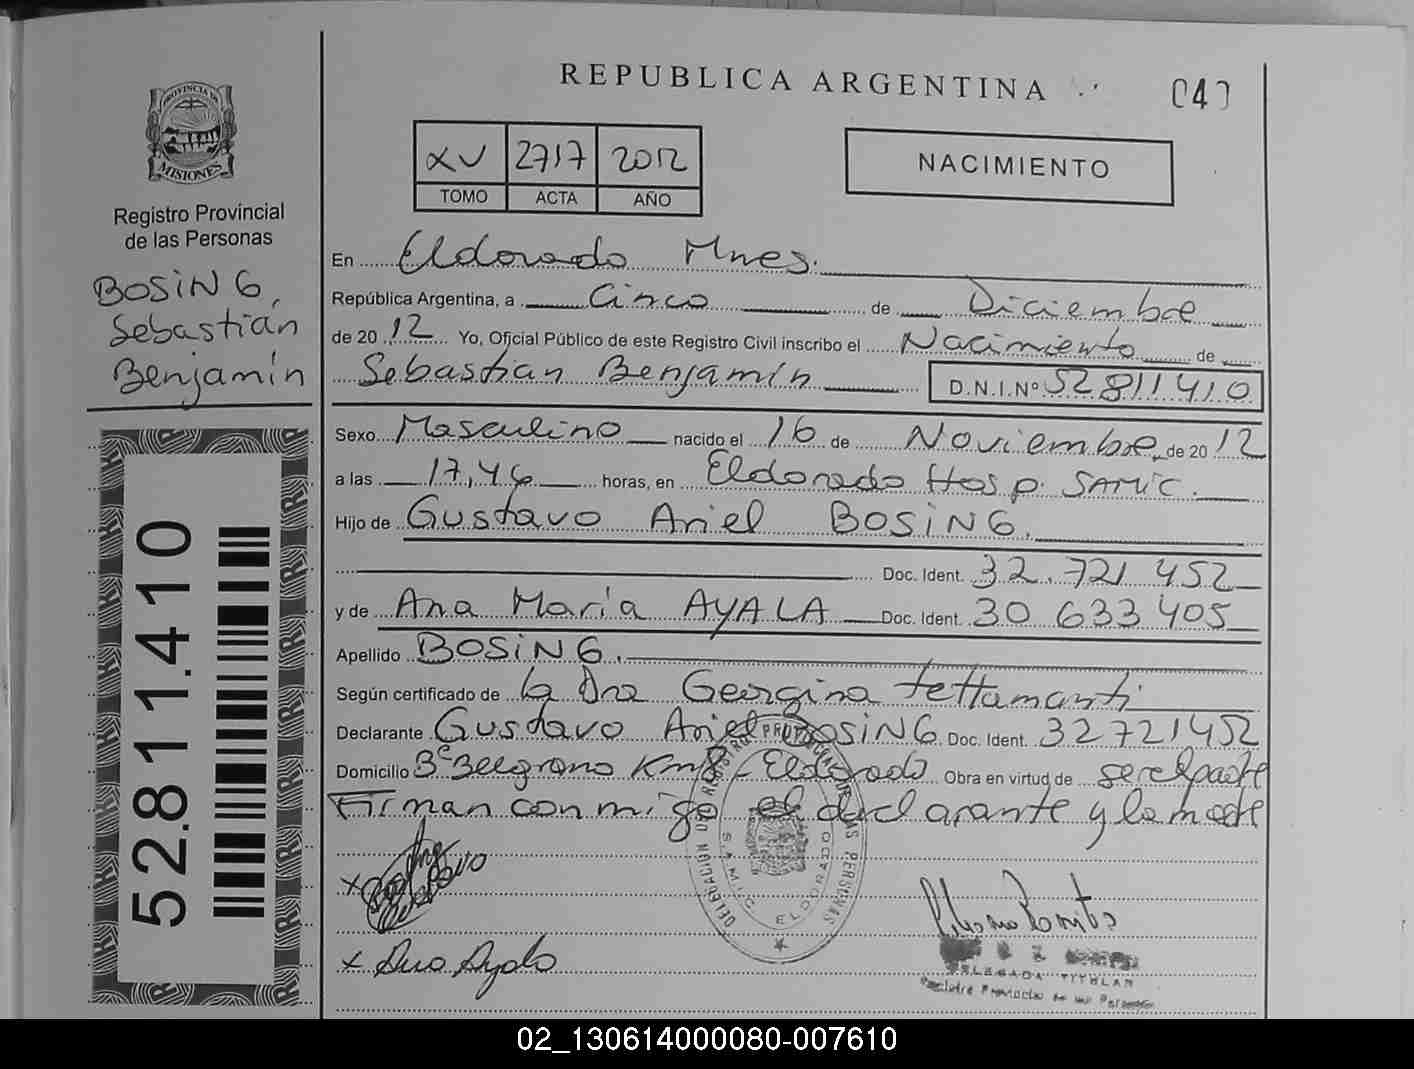 REPUBLICA ARGENTINA
040
PROVINCIA DE
MISIONES
Registro Provincial
de las Personas
BOSING,
Sebastián
Benjamín
52.811.410
XV 2717 2012
TOMO ACTA AÑO
NACIMIENTO
En Eldorado Mnes.
República Argentina, a Cinco de Diciembre
de 2012 Yo, Oficial Público de este Registro Civil inscribo el Nacimiento de
Sebastian Benjamín D.N.I.Nº 52 811 410
Sexo Masculino nacido el 16 de Noviembre de 2012
a las 17,46 horas, en Eldorado Hosp. SAMIC.
Hijo de Gustavo Ariel BOSING.
Doc. Ident. 32.721 452
y de Ana María AYALA Doc. Ident. 30 633 405
Apellido BOSING.
Según certificado de la Dra Georgina Tettamanti
Declarante Gustavo Ariel BOSING Doc. Ident. 32721452
Domicilio Bº Belgrano Km 8 - Eldorado Obra en virtud de ser el padre
Firman conmigo el declarante y la madre
DELEGACION REGISTRO PROVINCIAL DE LAS PERSONAS
S.A.M.I.C. ELDORADO
x Gustavo
x Ana Ayala
DELEGADA TITULAR
Registro Provincial de las Personas
02_130614000080-007610